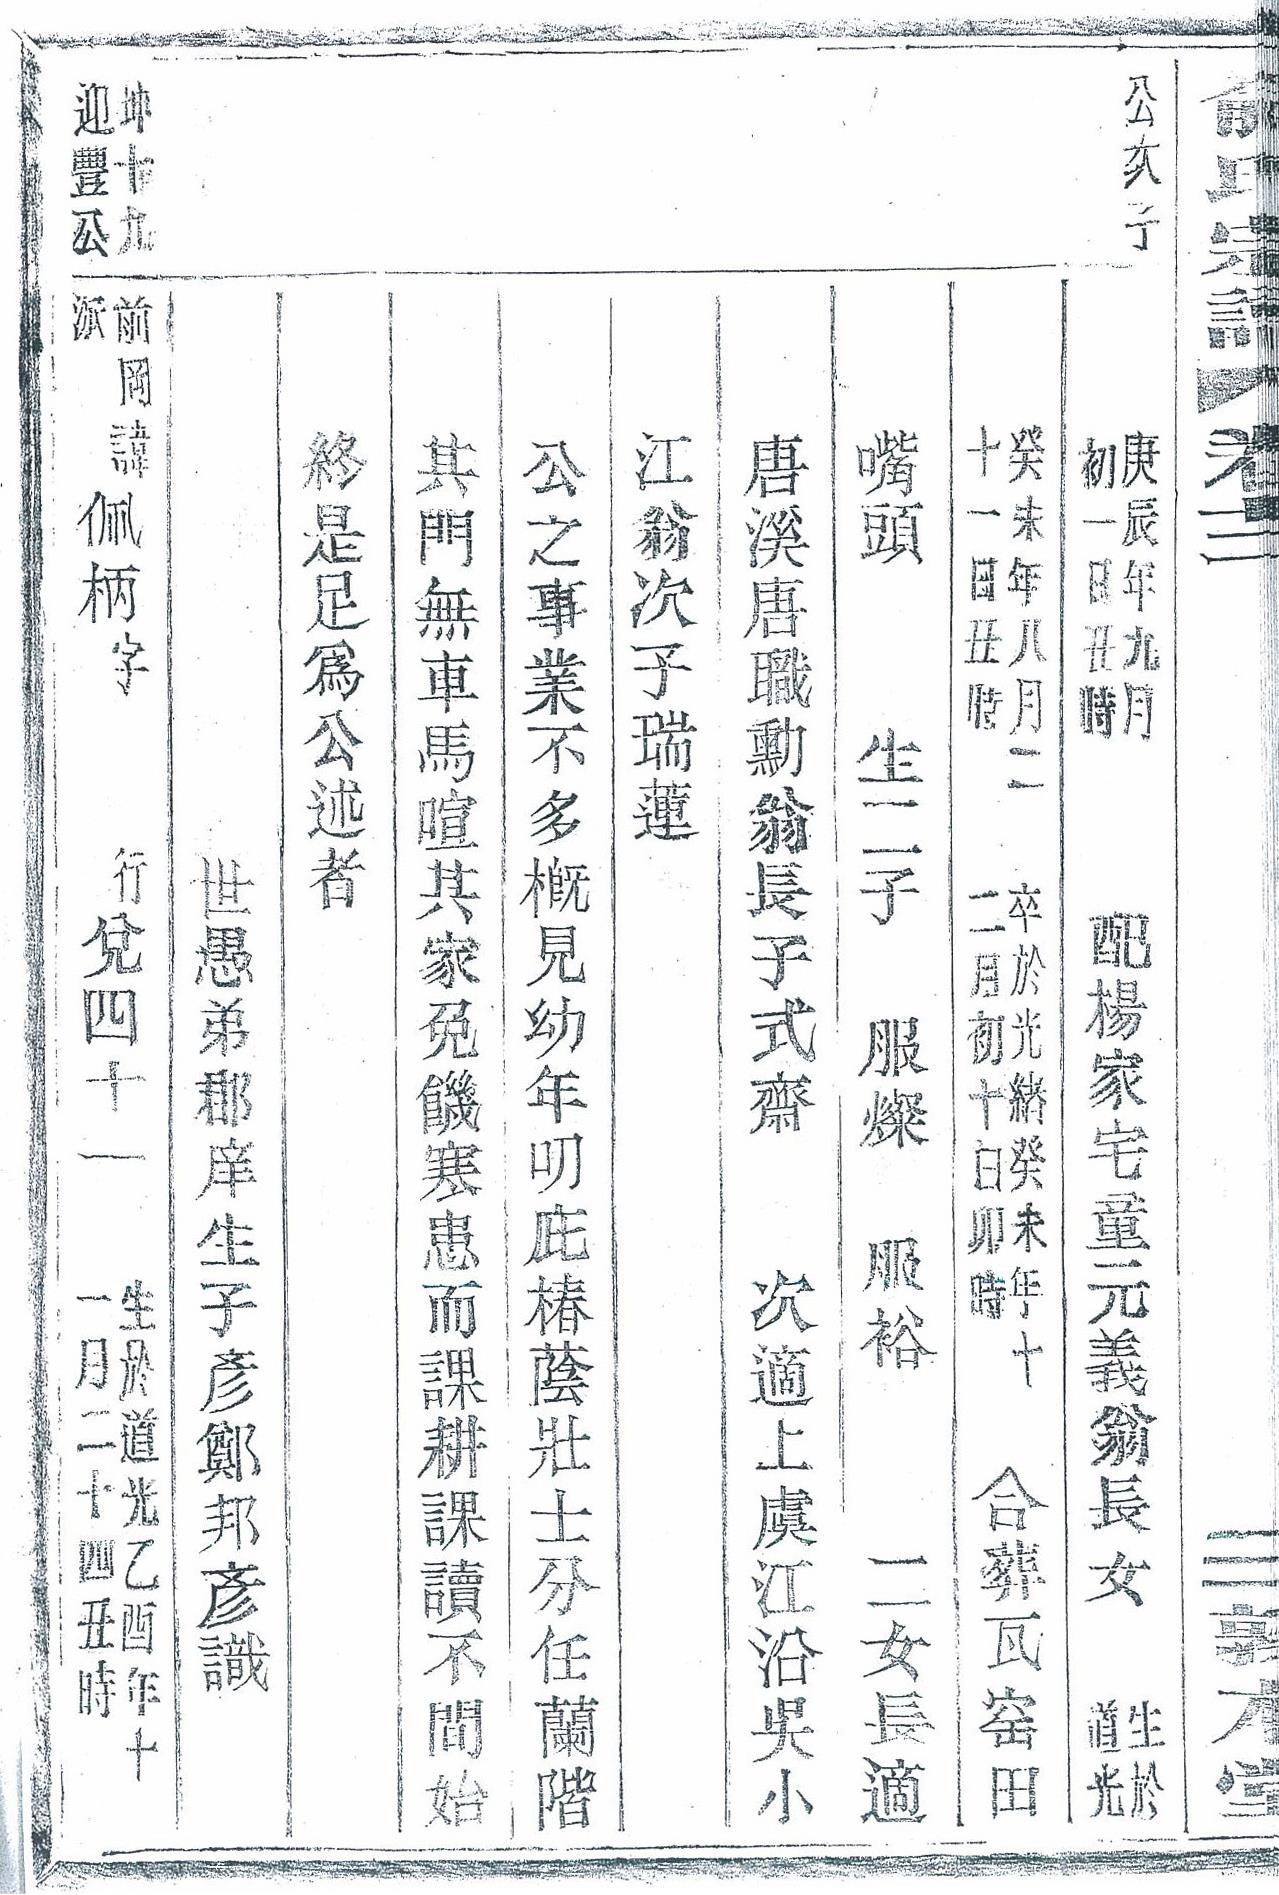 俞氏宗譜 卷三 三 敦本堂
公次子
庚辰年九月
初一日丑時
配楊家宅童元義翁長女
生於
道光
癸未年八月二
十一日丑時
卒於光緒癸未年十
二月初十日卯時
合葬瓦窑田
嘴頭 生二子 服燦 服裕 二女長適
唐溪唐職勳翁長子式齋 次適上虞江沿吳小
江翁次子瑞蓮
公之事業不多概見幼年叨庇椿蔭壯士分任蘭階
其門無車馬喧其家免饑寒患而課耕課讀不間始
終是足爲公述者
世愚弟郡庠生子彥鄭邦彥識
坤十九
迎豐公
前岡諱佩柄字
派
行兌四十一
生於道光乙酉年十
一月二十四丑時